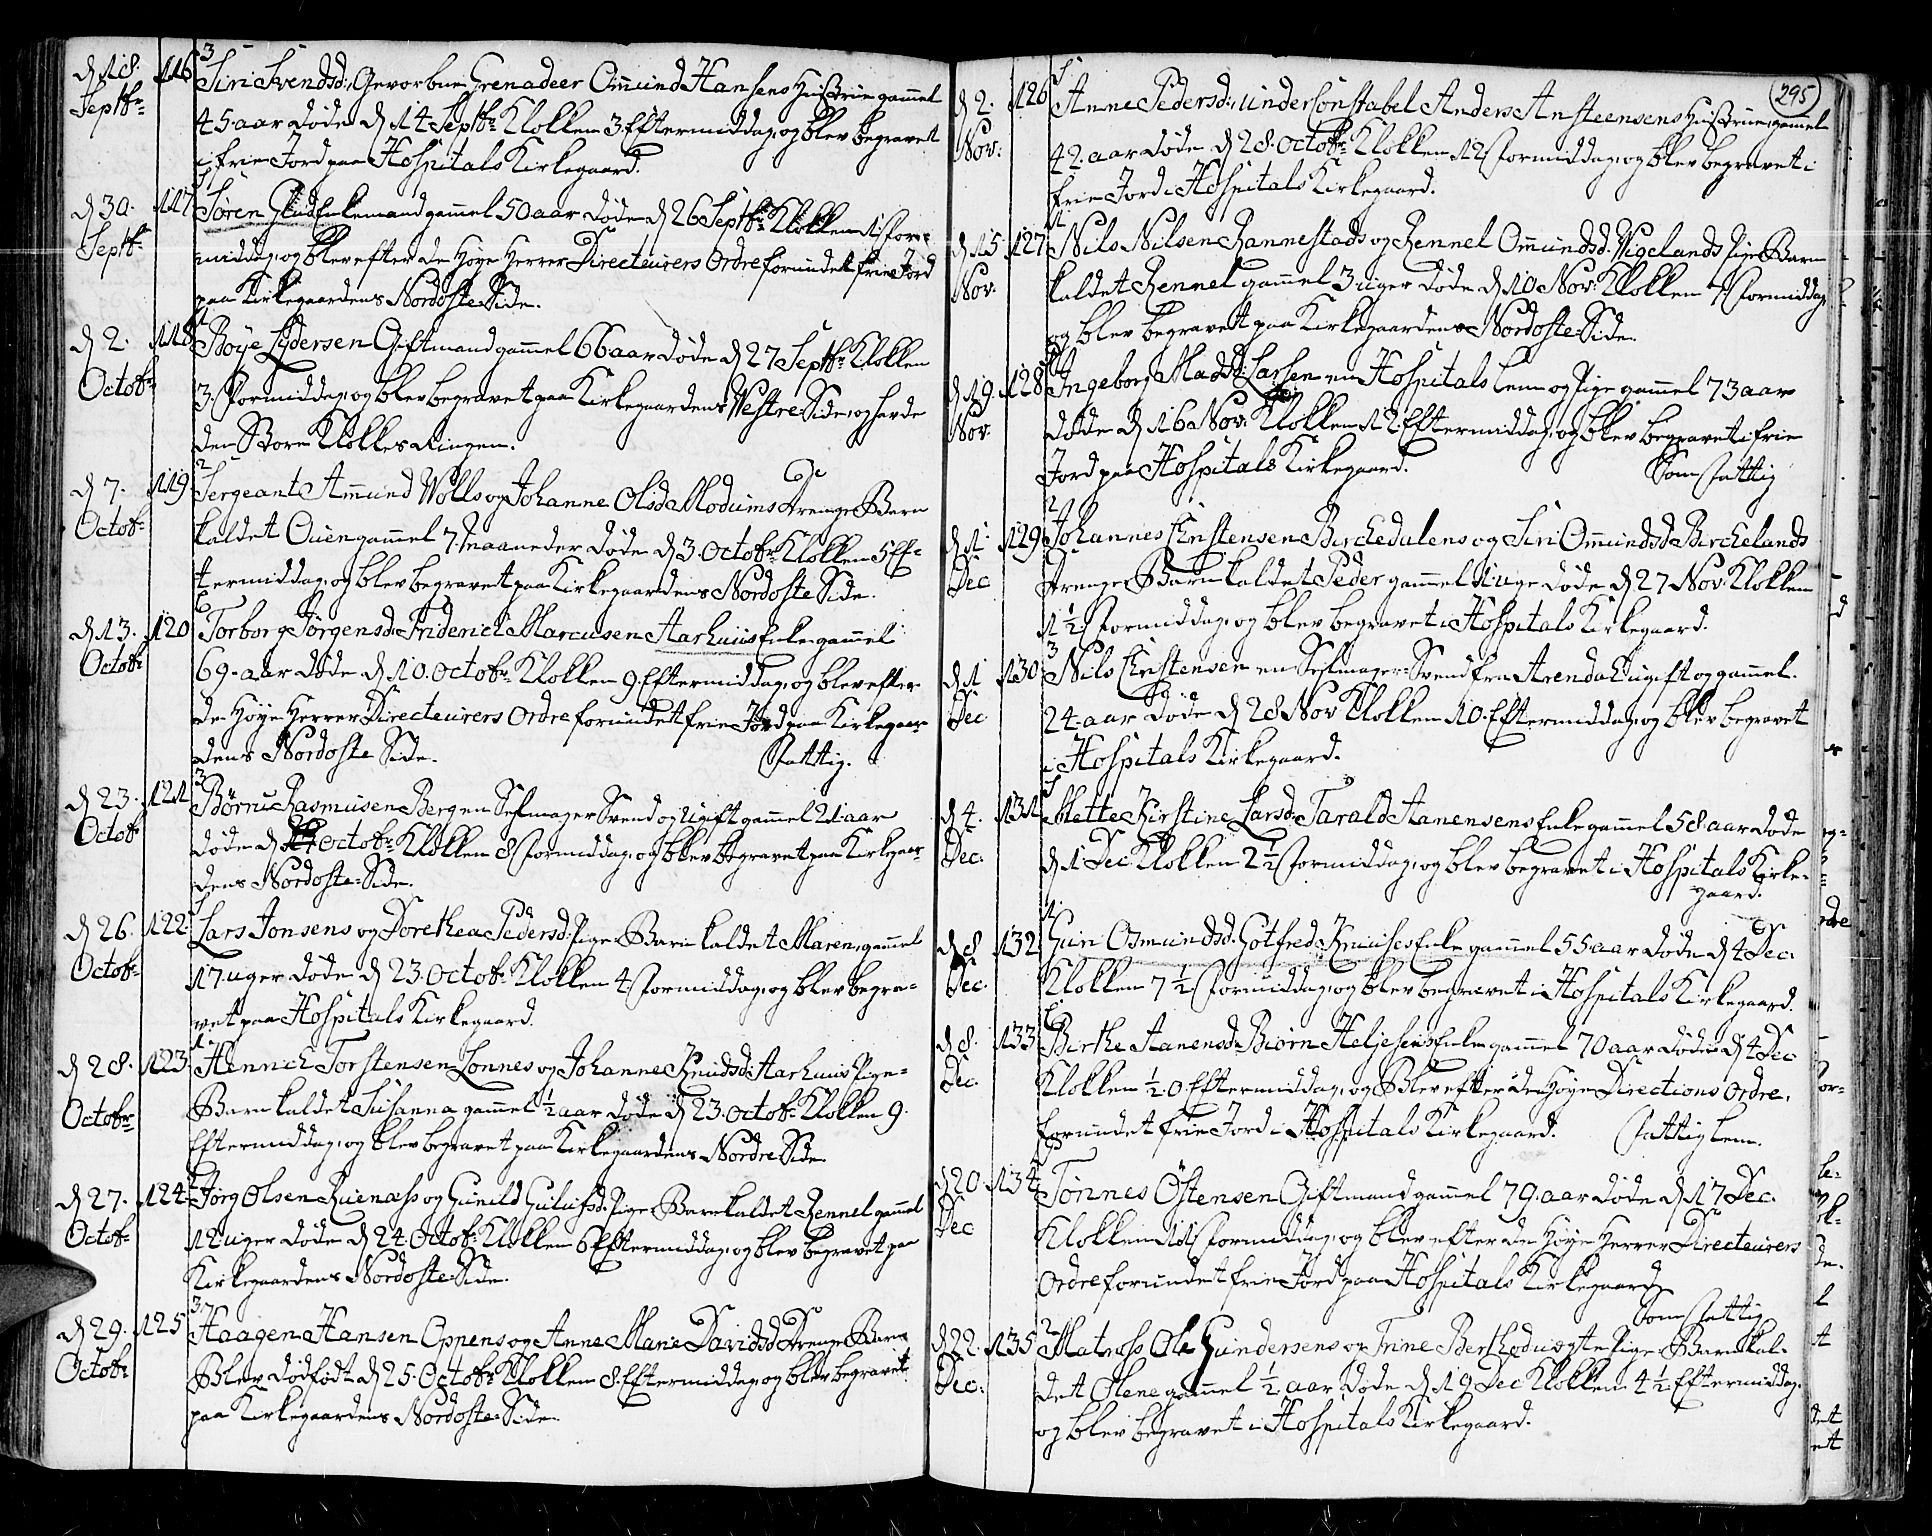 d 18. 116 3 Siri Svendsd: Gevorbne Grenadeer Omund Hansens Hustrue gammel
Septbr 45 aar døde d 14 Septbr Klokken 3 Eftermiddag, og blev begravet
i frie Jord paa Hospitals Kirkegaard.
d 30. 117 Søren Glud Enkemand gammel 50 aar døde d 26 Septbr Klokken 1 For-
Septbr middag, og blev efter de Høye Herrer Directeurers Ordre forundet frie Jord
paa Kirkegaardens Nordoste Side.
d 2. 118 Boye Lydersen Giftmand gammel 66 aar døde d 27 Septbr Klokken
Octobr 3. Formiddag, og blev begravet paa Kirkegaardens Vestre Side, og havde
den Store Klokkes Ringen.
d 7. 119 2 Sergeant Amund Wolls og Johanne Olsd Modums Drenge Barn
Octobr kaldet Ouen gammel 7 Maaneder døde d 3. Octobr Klokken 5 Ef-
termiddag, og blev begravet paa Kirkegaardens Nordoste Side.
d 13. 120 Torborg Jørgensd: Friderich Marcusen Aarhuus Enke gammel
Octobr 69. aar døde d 10. Octobr Klokken 9. Eftermiddag, og blev efter
de Høye Herrer Directeurers Ordre forundet frie Jord paa Kirkegaar-
dens Nordoste Side. Fattig.
d 23. 121 3 Børru Rasmusen Berg en Seilmager Svend og Ugift gammel 21 aar
Octobr døde d Octobr Klokken 8 Formiddag, og blev begravet paa Kirkegaar-
dens Nordoste Side.
d 26. 122 Lars Jonsens og Dorethea Pedersd: Pige Barn kaldet Maren, gammel
Octobr 17 uger døde d 23. Octobr Klokken 4 Formiddag, og blev begra-
vet paa Hospitals Kirkegaard.
d 28. 123 1. Hennich Torstensen Lonnes og Johanne Knudsd: Aarhuus Pige-
Octobr Barn kaldet Susanna gammel ½ aar døde d 23. Octobr Klokken 9.
Eftermiddag, og blev begravet paa Kirkegaardens Nordre Side.
d 27. 124 Jørg Olsen Ruenæss og Gunild Gulufsd: Pige Barn kaldet Rennel gammel
Octobr 12 uger døde d 24 Octobr Klokken 6 Eftermiddag, og blev begravet paa
Kirkegaardens Nordoste Side.
d 29. 125 3. Haagen Hansen Oppens og Anne Marie Davidsd Drenge Barn
Octobr Blev dødfødt d 25. Octobr Klokken 8. Eftermiddag, og blev begravet
paa Kirkegaardens Nordoste Side.
295
d 2. 126 Anne Pedersd: underConstabel Anders Ansteensens Hustrue, gammel
Nov: 42. aar døde d 28. Octobr Klokken 12 Formiddag, og blev begravet i
frie Jord i Hospitals Kirkegaard.
d 15. 127 1 Nils Nilsen Rannestads og Rennel Omundsd. Vigelands Pige Barn
Nov. kaldet Rennel gammel 3 uger døde d 10 Nov: Klokken 7 Formiddag,
og blev begravet paa Kirkegaardens Nordoste Side.
d 19. 128 Ingeborg Madsd: Larsen en Hospitals Lem og Pige gammel 73 aar
Nov. døde d 16 Nov. Klokken 12. Eftermiddag, og blev begravet i frie
Jord paa Hospitals Kirkegaard. Som Fattig
d 1. 129 2 Johannes Christensen Birckedalens og Siri Omundsd Birckelands
Dec Drenge Barn kaldet Peder gammel 1 uge døde d 27 Nov. Klokken
1½ Formiddag, og blev begravet i Hospitals Kirkegaard.
d 1 130 3 Nils Christensen en Seilmager Svend fra Arendal Ugift og gammel
Dec 24 aar døde d 28 Nov Klokken 10. Eftermiddag, og blev begravet
i Hospitals Kirkegaard.
d 4. 131 Mette Kirstine Larsd. Tarald Aanensens Enke gammel 58 aar døde
Dec. d 1 Dec Klokken 2½ Formiddag, og blev begravet i Hospitals Kirke-
gaard.
d. 8. 132 1. Guri Osmundsd. Gotfred Kruuses Enke gammel 55 aar døde d 4 Dec.
Dec. Klokken 7½ Formiddag, og blev begravet i Hospitals Kirkegaard.
d 8. 133 Birthe Aanensd: Biørn Heljesens Enke gammel 70 aar døde d 4 Dec
Dec. Klokken ½ 0. Eftermiddag, og Blev efter de Høye Directions Ordre,
forundet frie Jord i Hospitals Kirkegaard. Fattig Lem.
d 20. 134 Tønnes Østensen Giftmand gammel 79. aar døde d 17 Dec.
Dec Klokken 11 Formiddag, og blev efter de Høye Herrer Directeurers
Ordre forundet frie Jord paa Hospitals Kirkegaard
Som Fattig
d 22. 135 2 Matross Ole Gundersens og Trine Berthe Pige Barn kal-
Dec. det Olene gammel ½ aar døde d 19 Dec Klokken 4½ Eftermiddag,
og blev begravet i Hospitals Kirkegaard.